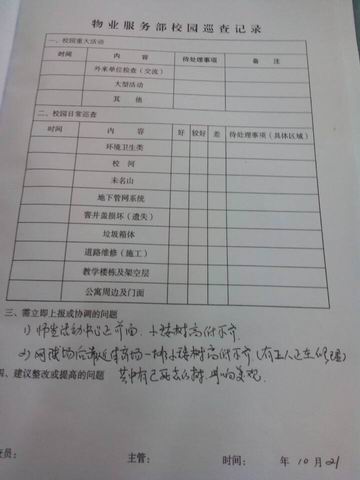 物业服务部校园巡查记录
一、校园重大活动
时间 内 容 待处理事项 备 注
外来单位检查（交流）
大型活动
其 他
二、校园日常巡查
时间 内 容 好 较好 差 待处理事项（具体区域）
环境卫生类
校 河
未名山
地下管网系统
窨井盖损坏（遗失）
垃圾箱体
道路维修（施工）
教学楼栋及架空层
公寓周边及门面
三、需立即上报或协调的问题
1）师生活动中心正前面，小矮树高低不齐
2）网球场后靠近体育场一排小矮树高低不齐（有工人正在修理）
四、建议整改或提高的问题 其中有已死去的树，影响美观。
查员： 主管： 时间： 年 10月21